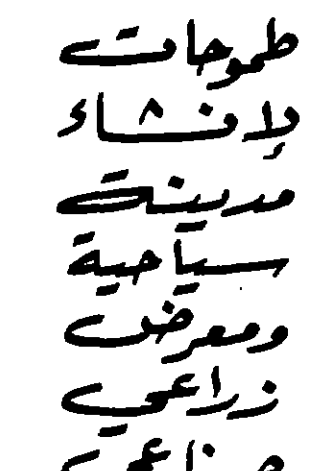 طموحات
لإنشاء
مدينة
سياحية
ومعرض
زراعي
صناعي